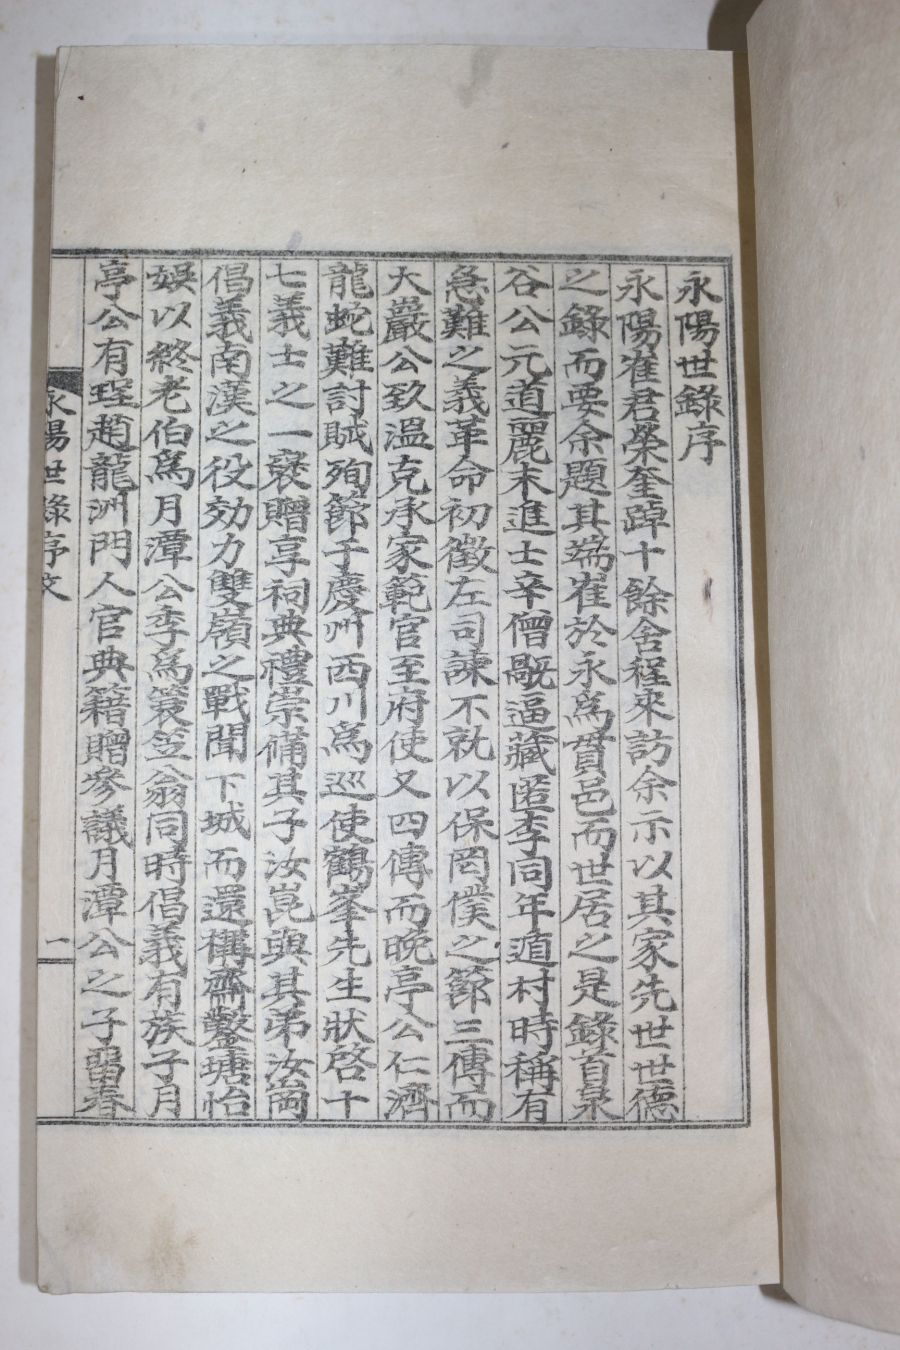 永陽世錄序
永陽崔君榮奎踔十餘舍程來訪余示以其家先世世德
之錄而要余題其端崔於永爲貫邑而世居之是錄首泉
谷公元道麗末進士辛僧旽逼藏匿李同年遁村時稱有
急難之義革命初徵左司諫不就以保罔僕之節三傳而
大巖公致溫克承家範官至府使又四傳而晩亭公仁濟
龍蛇難討賊殉節于慶州西川爲巡使鶴峯先生狀啓十
七義士之一褒贈享祠典禮崇備其子汝崑與其弟汝崗
倡義南漢之役効力雙嶺之戰聞下城而還構齋鑿塘怡
娛以終老伯爲月潭公季爲簑笠翁同時倡義有族子月
亭公有珵趙龍洲門人官典籍贈參議月潭公之子㽞春
永陽世錄序文
一